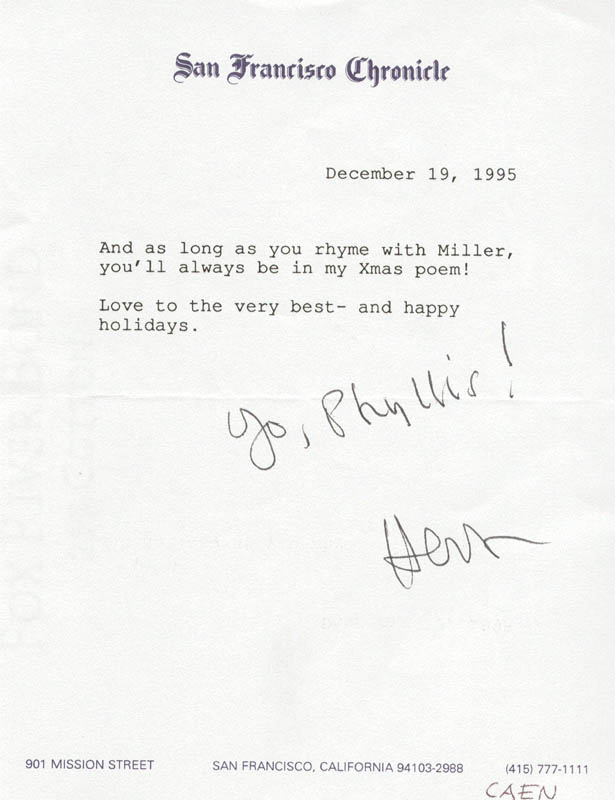 San Francisco Chronicle
December 19, 1995
And as long as you rhyme with Miller,
you'll always be in my Xmas poem!
Love to the very best- and happy
holidays.
Yo, Phyllis!
Herb
901 MISSION STREET SAN FRANCISCO, CALIFORNIA 94103-2988 (415) 777-1111
CAEN